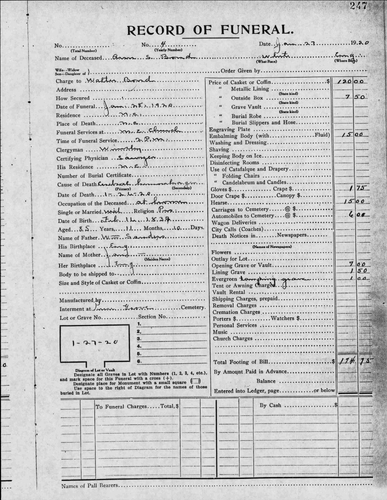 247
RECORD OF FUNERAL.
No. No. 4 Date Jan 27 1920
(Total Number) (Yearly Number)
Name of Deceased S Bond White
(What Race) (Where Born)
Charge to Walter Bond Order Given by
Address
How Secured
Date of Funeral Jan 28, 1920
Residence
Place of Death
Funeral Services at M E Church
Time of Funeral Service 2 P.M.
Clergyman
Certifying Physician Sawyer
His Residence
Number of Burial Certificate
Cause of Death Cerebral
Date of Death 1-26-20
Occupation of the Deceased at home
Single or Married Wid Religion
Date of Birth Feb. 16 1834
Aged 85 Years 11 Months 10 Days
Name of Father Wm Sanders
His Birthplace Eng
Name of Mother Jane
Her Birthplace Eng
Body to be shipped to
Size and Style of Casket or Coffin
Manufactured by
Interment at Cemetery.
Lot or Grave No. Section No.
1-27-20
Diagram of Lot or Vault
Designate all Graves in Lot with Numbers (1, 2, 3, 4, etc.), and mark space for this Funeral with a cross (+).
Designate place for Monument with a small square
Use space to the right of Diagram for the names of those buried in Lot.
Price of Casket or Coffin $ 120 00
" Metallic Lining
" Outside Box 7 50
" Grave Vault
" Burial Robe
" Burial Slippers and Hose
Engraving Plate
Embalming Body (with Fluid) 15 00
Washing and Dressing
Shaving
Keeping Body on Ice
Disinfecting Rooms
Use of Catafalque and Drapery
" Folding Chairs
" Candelabrum and Candles
Gloves $ Crape $ 1 75
Door Crape Canopy $
Hearse 15 00
Carriages to Cemetery @ $
Automobiles to Cemetery @ $ 6 00
Wagon Deliveries
City Calls (Coaches)
Death Notices in Newspapers
(Names of Newspapers)
Flowers
Outlay for Lot
Opening Grave or Vault 7 00
Lining Grave 1 50
Evergreen 1 00
Tent or Awning Charges
Vault Rental
Shipping Charges, prepaid
Removal Charges
Cremation Charges
Porters $ Watchers $
Personal Services
Music
Church Charges
Total Footing of Bill $ 174 75
By Amount Paid in Advance
Balance
Entered into Ledger, page or below.
To Funeral Charges $ By Cash $
Names of Pall Bearers